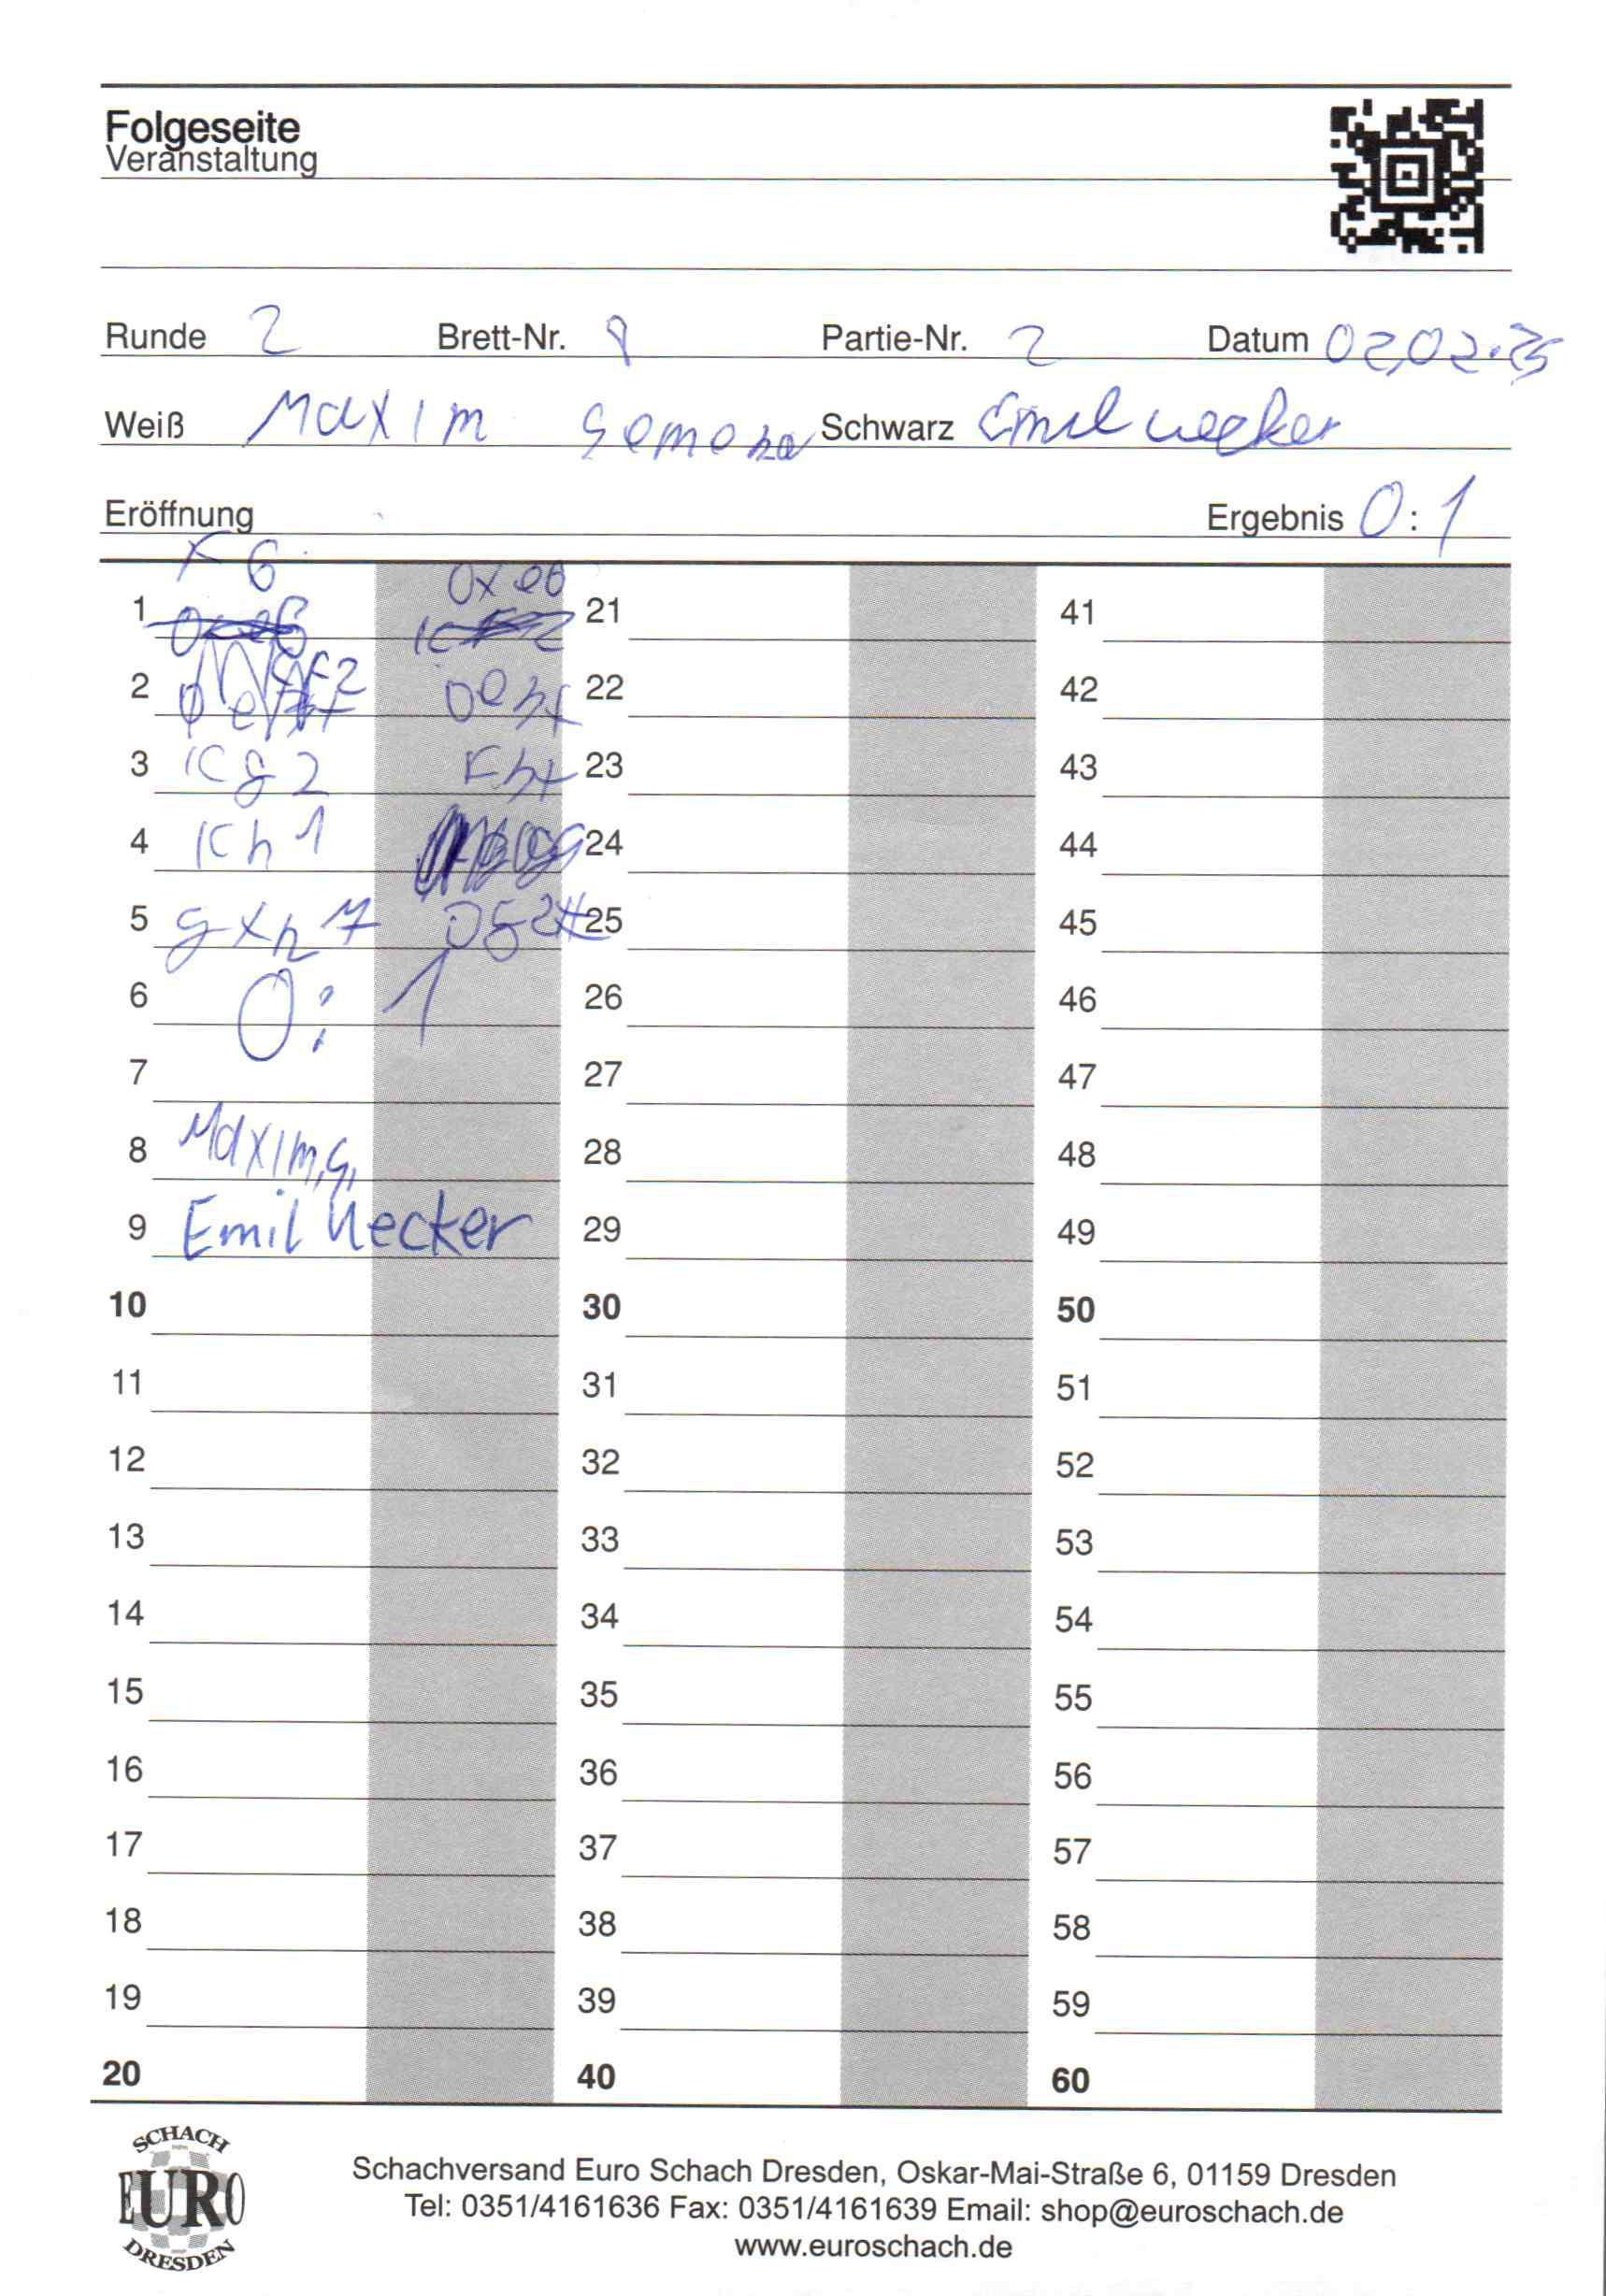 Folgeseite
Veranstaltung
Runde 2 Brett-Nr. 8 Partie-Nr. 2 Datum 02.02.25
Weiß Maxim Schwarz Emil Uecker
Eröffnung Ergebnis 0:1
1 Dxe6 21 41
2 22 42
3 Kg2 23 43
4 Kh1 24 44
5 gxh7 Dg2# 25 45
6 0:1 26 46
7 27 47
8 Maxim,G, 28 48
9 Emil Uecker 29 49
10 30 50
11 31 51
12 32 52
13 33 53
14 34 54
15 35 55
16 36 56
17 37 57
18 38 58
19 39 59
20 40 60
SCHACH
EURO
DRESDEN
Schachversand Euro Schach Dresden, Oskar-Mai-Straße 6, 01159 Dresden
Tel: 0351/4161636 Fax: 0351/4161639 Email: shop@euroschach.de
www.euroschach.de